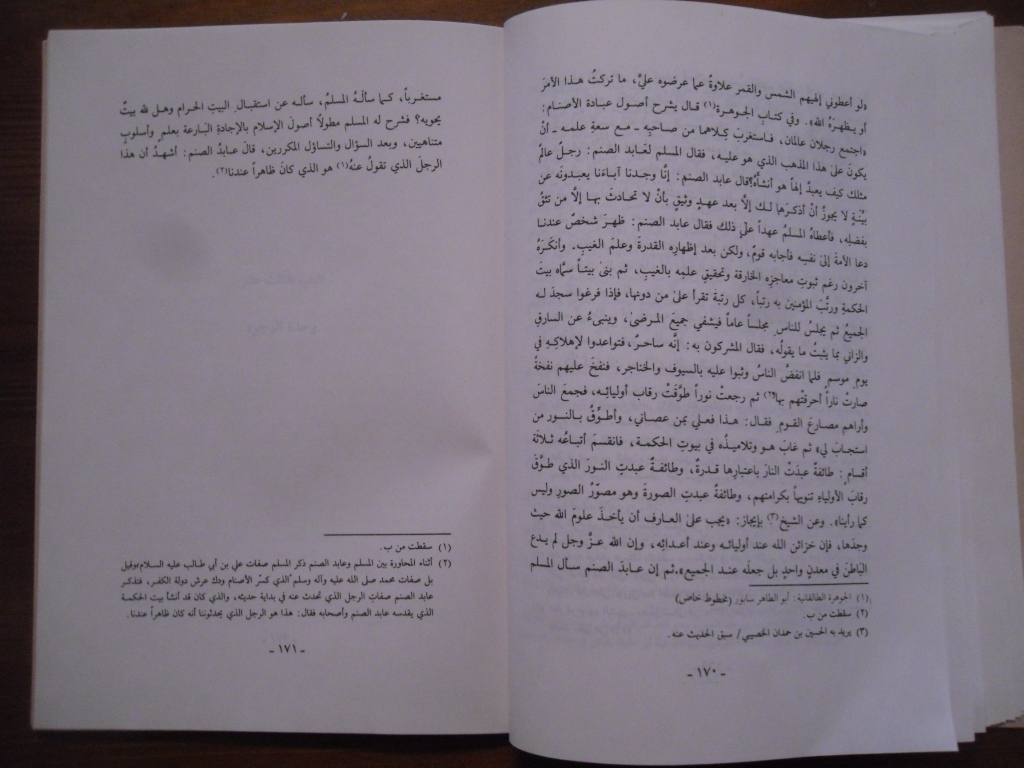 «لو أعطوني إلهيهم الشمس والقمر علاوةً عما عرضوه عليَّ، ما تركتُ هذا الأمرَ
أو يظهرَهُ الله». وفي كتاب الجوهرة(١) قال يشرح أصول عبادة الأصنام:
«اجتمع رجلان عالمان، فاستغربَ كلاهما من صاحبِه ـ مع سعةِ علمه ـ أنْ
يكونَ على هذا المذهب الذي هو عليه، فقال المسلم لعابد الصنم: رجلٌ عالمٌ
مثلك كيف يعبدُ إلهاً هو أنشأهُ؟ قال عابد الصنم: إنَّا وجدنا آباءَنا يعبدونَه عن
بيِّنةٍ لا يجوزُ أنْ أذكرَها لك إلَّا بعد عهدٍ وثيقٍ بأنْ لا تحادثَ بها إلَّا من تثقُ
بفضلِه، فأعطاهُ المسلمُ عهداً على ذلك فقال عابد الصنم: ظهرَ شخصٌ عندنا
دعا الأمةَ إلى نفسِه فأجابه قومٌ، ولكن بعد إظهارِه القدرةَ وعلمَ الغيبِ. وأنكرَهُ
آخرون رغم ثبوتِ معاجزِه الخارقة وتحقيقِ علمِه بالغيبِ، ثم بنى بيتاً سمَّاه بيتَ
الحكمةِ ورتَّبَ المؤمنين به رتباً، كل رتبة تقرأ على من دونها، فإذا فرغوا سجدَ له
الجميعُ ثم يجلسُ للناسِ مجلساً عاماً فيشفي جميعَ المرضى، وينبىءُ عن السارقِ
والزاني بما يثبتُ ما يقولُه، فقال المشركون به: إنَّه ساحرٌ، فتواعدوا لإهلاكِهِ في
يومِ موسمٍ فلما انفضَّ الناسُ وثبوا عليه بالسيوف والخناجر، فنفخَ عليهم نفخةً
صارتْ ناراً أحرقتْهم بها(٢) ثم رجعتْ نوراً طوَّقَتْ رقاب أوليائِه، فجمعَ الناسَ
وأراهم مصارعَ القومِ فقال: هذا فعلي بمن عصاني، وأطوِّقُ بالنور من
استجابَ لي» ثم غابَ هو وتلاميذُه في بيوتِ الحكمة، فانقسمَ أتباعُه ثلاثةَ
أقسام: طائفةٌ عبدَتْ النارَ باعتبارِها قدرةً، وطائفةٌ عبدتِ النورَ الذي طوَّقَ
رقابَ الأولياءِ تنويهاً بكرامتهم، وطائفةٌ عبدتِ الصورةَ وهو مصوّرُ الصورِ وليس
كما رأيناه. وعن الشيخ(٣) بإيجاز: «يجب على العارف أن يأخذَ علومَ الله حيث
وجدَها، فإن خزائنَ الله عند أوليائه وعند أعدائِه، وإن الله عزَّ وجل لم يدع
البَاطنَ في معدنٍ واحدٍ بل جعلَه عند الجميع». ثم إن عابدَ الصنم سأل المسلم
(١) الجوهرة الطالقانية: أبو الطاهر سابور (مخطوط خاص)
(٢) سقطت من ب.
(٣) يريد به الحسين بن حمدان الخصيبي/ سبق الحديث عنه.
ـ ١٧٠ ـ
مستغرباً، كما سألَهُ المسلمُ، سأله عن استقبالِ البيتِ الحرام وهل لله بيتٌ
يحويه؟ فشرح له المسلم مطولًا أصولَ الإسلام بالإجادةِ البارعة بعلمٍ وأسلوبٍ
متناهيين، وبعد السؤال والتساؤل المكررين، قالَ عابدُ الصنم: أشهدُ أن هذا
الرجلَ الذي تقولُ عنهُ(١) هو الذي كانَ ظاهراً عندنا(٢).
(١) سقطت من ب.
(٢) أثناء المحاورة بين المسلم وعابد الصنم ذكر المسلم صفات علي بن أبي طالب عليه السلام/وقيل
بل صفات محمد صلى الله عليه وآله وسلم/الذي كسر الأصنام ودك عرش دولة الكفر، فتذكر
عابد الصنم صفات الرجل الذي تحدث عنه في بداية حديثه، والذي كان قد أنشأ بيت الحكمة
الذي يقدسه عابد الصنم وأصحابه فقال: هذا هو الرجل الذي يحدثوننا أنه كان ظاهراً عندنا.
ـ ١٧١ ـ